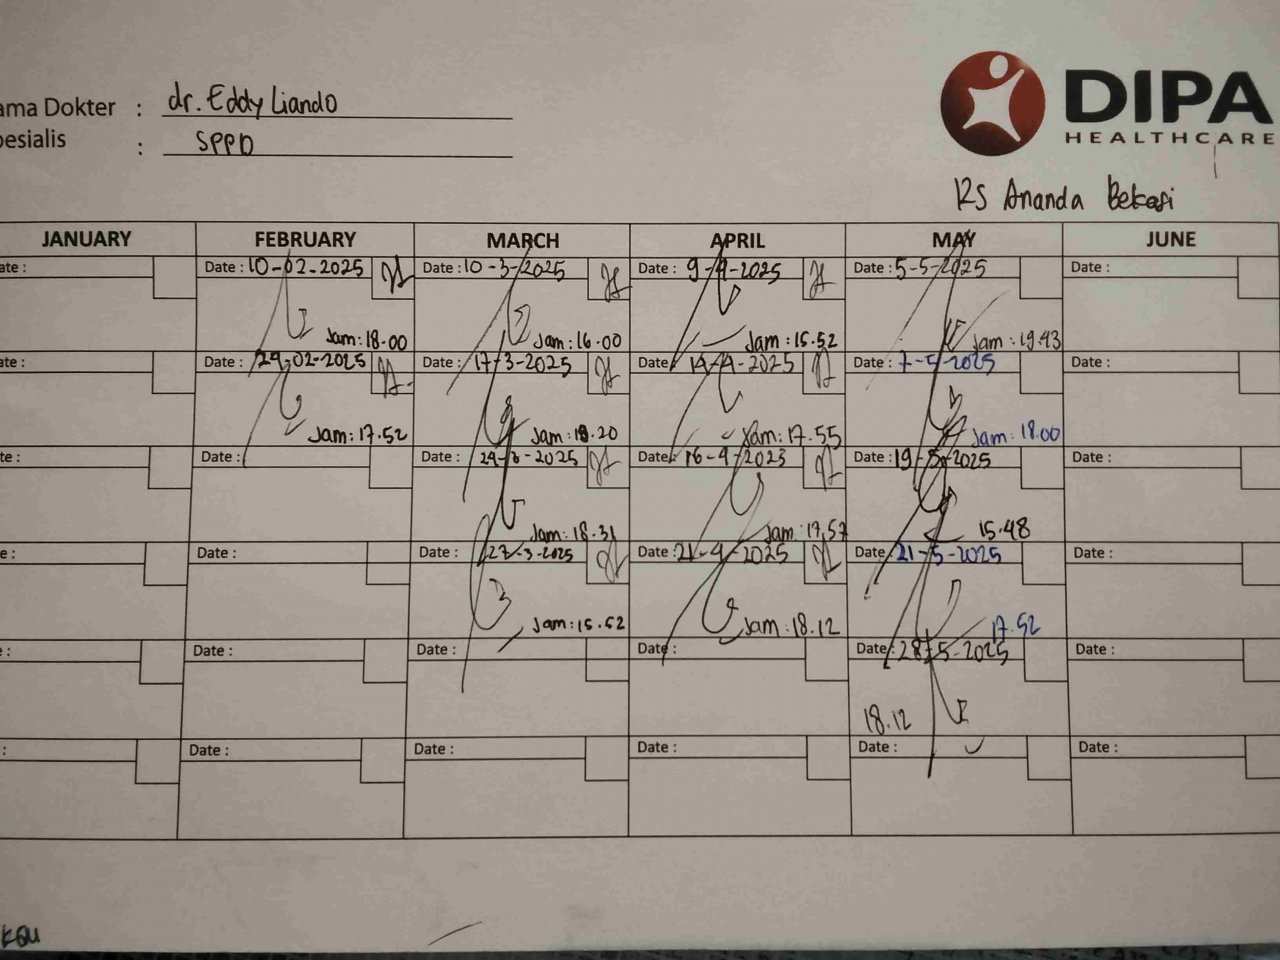 ama Dokter : dr. Eddy Liando
pesialis : SPPD
DIPA
HEALTHCARE
RS Ananda Bekasi
JANUARY FEBRUARY MARCH APRIL MAY JUNE
ate : Date : 10-02-2025 Date : 10-3-2025 Date : 9-4-2025 Date : 5-5-2025 Date :
Jam : 18.00 Jam : 16.00 Jam : 15.52 Jam : 19.43
ate : Date : 24-02-2025 Date : 17-3-2025 Date : 14-4-2025 Date : 7-5-2025 Date :
Jam : 17.52 Jam : 18.20 Jam : 17.55 Jam : 18.00
te : Date : Date : 24-3-2025 Date : 16-4-2023 Date : 19-5-2025 Date :
Jam : 18.31 Jam : 17.57 15.48
e : Date : Date : 27-3-2025 Date : 21-4-2025 Date : 21-5-2025 Date :
Jam : 15.52 Jam : 18.12 17.52
: Date : Date : Date : Date : 28-5-2025 Date :
18.12
: Date : Date : Date : Date : Date :